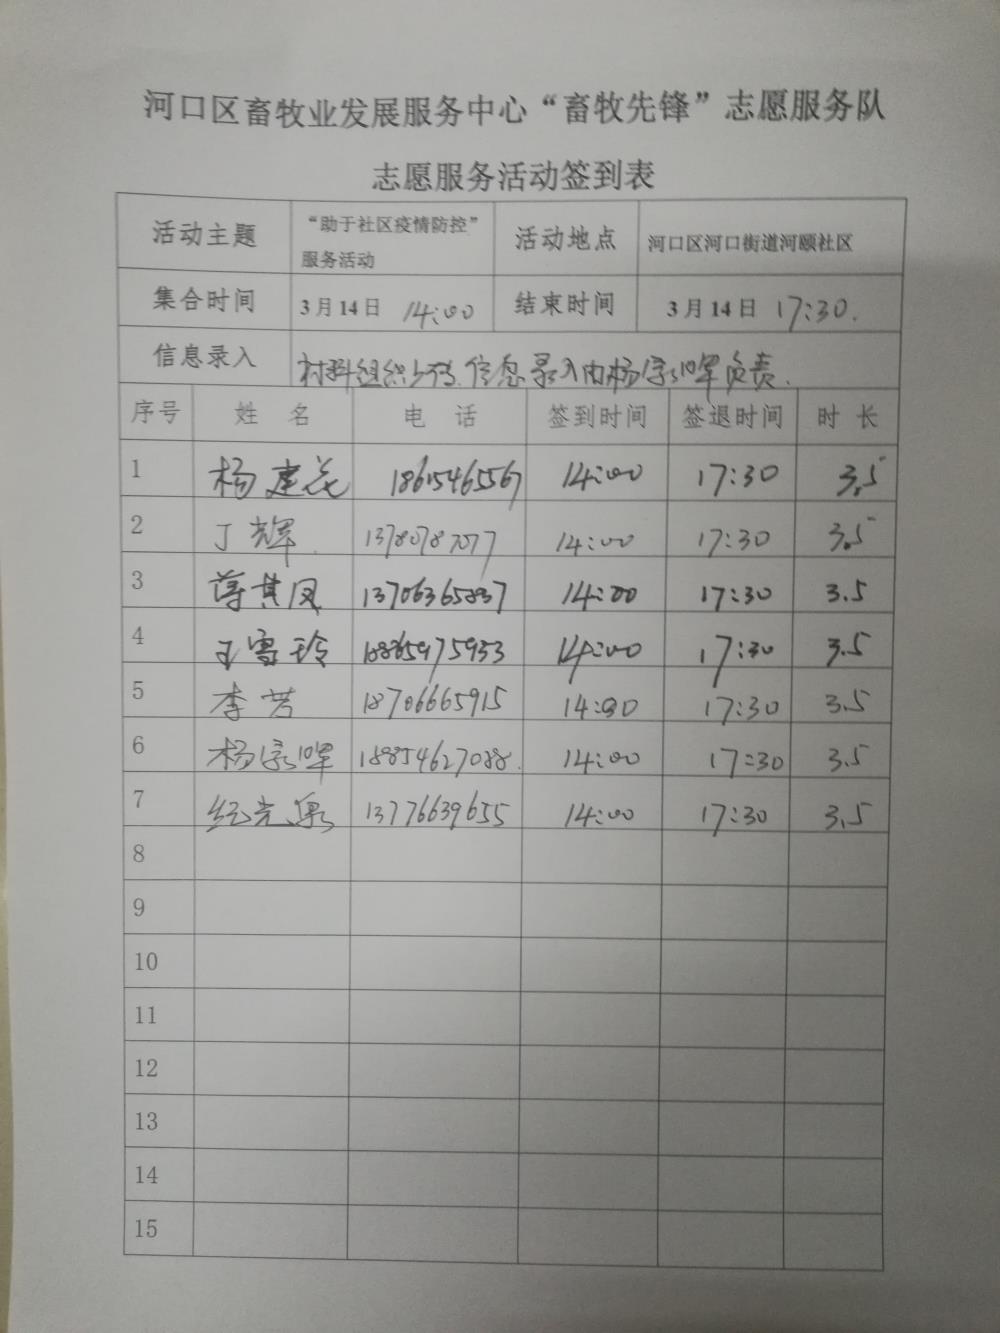 河口区畜牧业发展服务中心“畜牧先锋”志愿服务队
志愿服务活动签到表
活动主题 “助于社区疫情防控” 服务活动 活动地点 河口区河口街道河颐社区
集合时间 3月14日 14:00 结束时间 3月14日 17:30.
信息录入 材料组织上传.信息录入由杨 晖负责.
序号 姓 名 电 话 签到时间 签退时间 时 长
1 杨建花 18615465567 14:00 17:30 3.5
2 丁辉 13780787077 14:00 17:30 3.5
3 蒋其凤 13706365837 14:00 17:30 3.5
4 王雪玲 18865975933 14:00 17:30 3.5
5 李芳 18706665915 14:00 17:30 3.5
6 杨 晖 18854627088. 14:00 17:30 3.5
7 纪光泉 13776639655 14:00 17:30 3.5
8
9
10
11
12
13
14
15